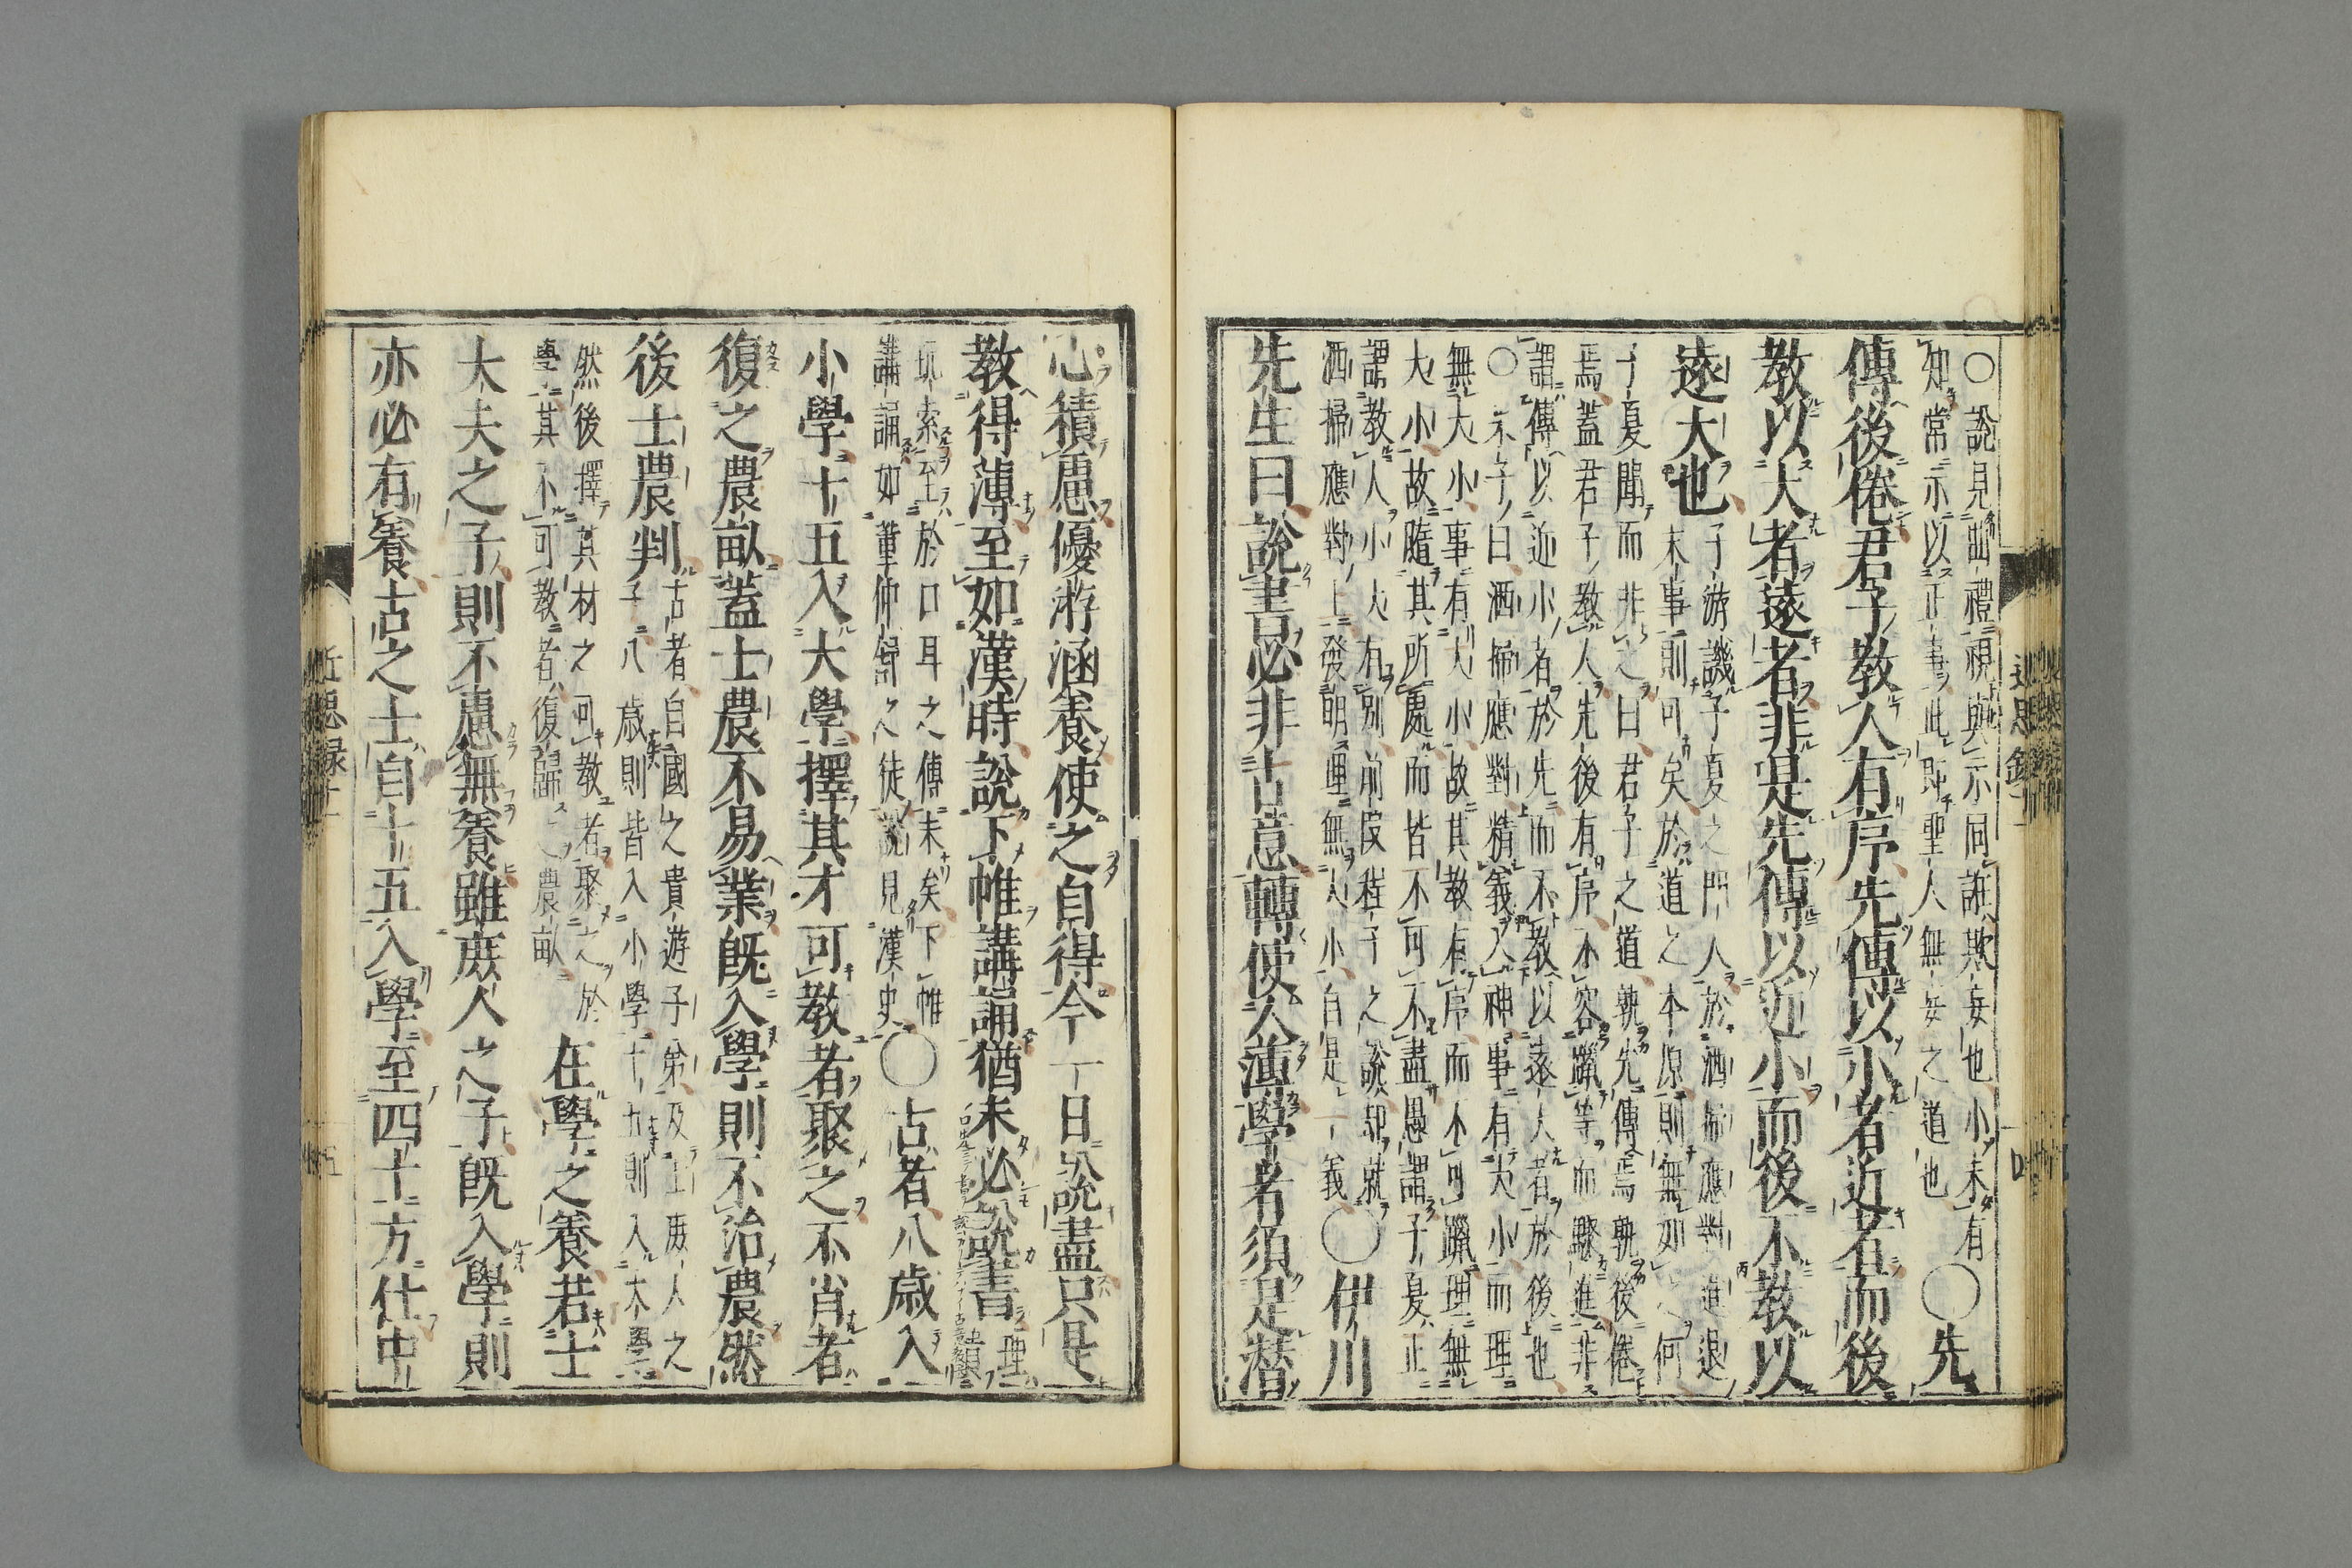 ○說見曲禮視與示同誑欺妄也小未有
知常示以正事此即聖人無妄之道也○先
傳後倦君子教人有序先傳以小者近者而後
教以大者遠者非是先傳以近小而後不教以
遠大也
子游譏子夏之門人於洒掃應對進退
末事則可矣於道之本原則無如之何
子夏聞而非之曰君子之道孰先傳焉孰後倦
焉蓋君子教人先後有序不容躐等而驟進非
謂傳以近小者於先而不教以遠大者於後也
○朱子曰洒掃應對精義入神事有大小而理
無大小事有大小故其教有序而不可躐理無
大小故隨其所處而皆不可不盡愚謂子夏正
謂教人小大有別前段程子之說却就
洒掃應對上發明理無大小自是一義○伊川
先生曰說書必非古意轉使人薄學者須是潛
心積慮優游涵養使之自得今一日說盡只是
教得薄至如漢時說下帷講誦猶未必說書理
玩索至於口耳之傳末矣下帷
講誦如董仲舒之徒說見漢史○古者八歲入
小學十五入大學擇其才可教者聚之不肖者
復之農畝蓋士農不易業既入學則不治農然
後士農判
古者自國之貴遊子弟及士庶人之
子八歲則皆入小學十五則入大學
然後擇其材之可教者聚之於
學其不可教者復歸之農畝
在學之養若士
大夫之子則不慮無養雖庶人之子既入學則
亦必有養古之士自十五入學至四十方仕中
近思錄十一
四
近思録十一
五